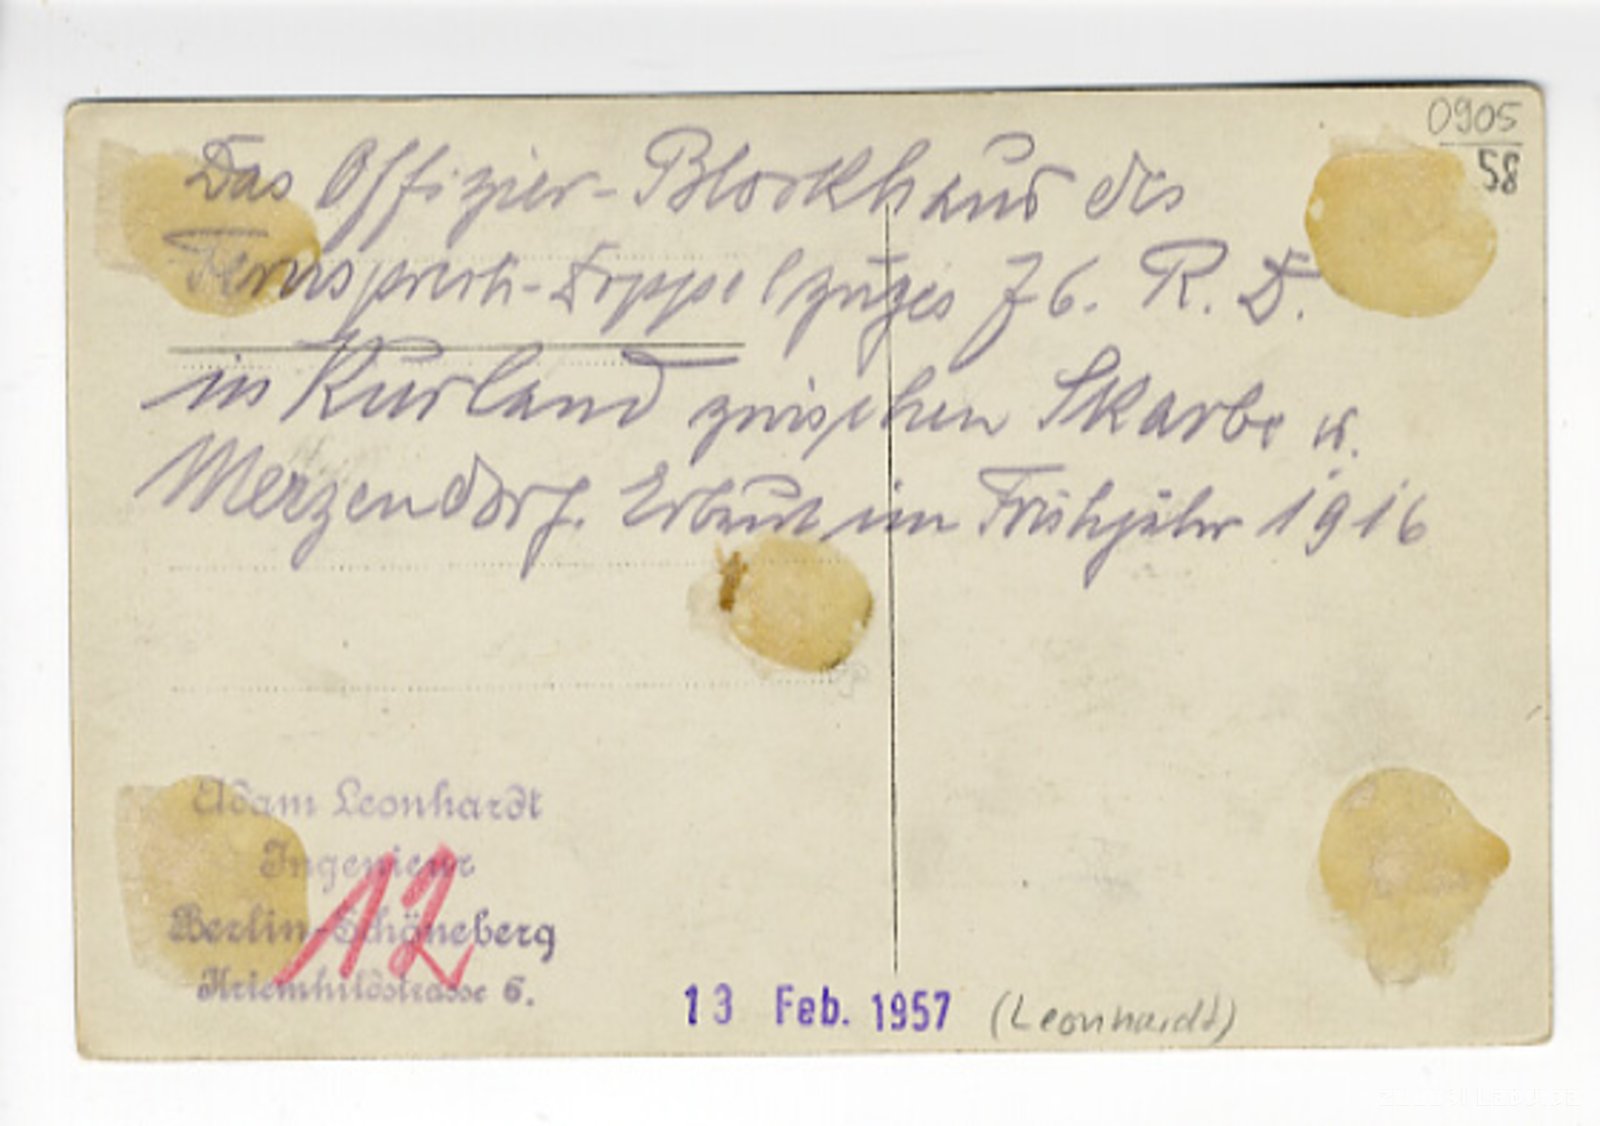 0905
58
Das Offizier-Blockhaus des
Fernsprech-Doppelzuges 76. R. D.
in Kurland zwischen Skarbe u.
Merzendorf. Erbaut im Frühjahr 1916
Adam Leonhardt
Ingenieur
12
Berlin-Schöneberg
Kriemhildstrasse 6.
13 Feb. 1957 (Leonhardt)